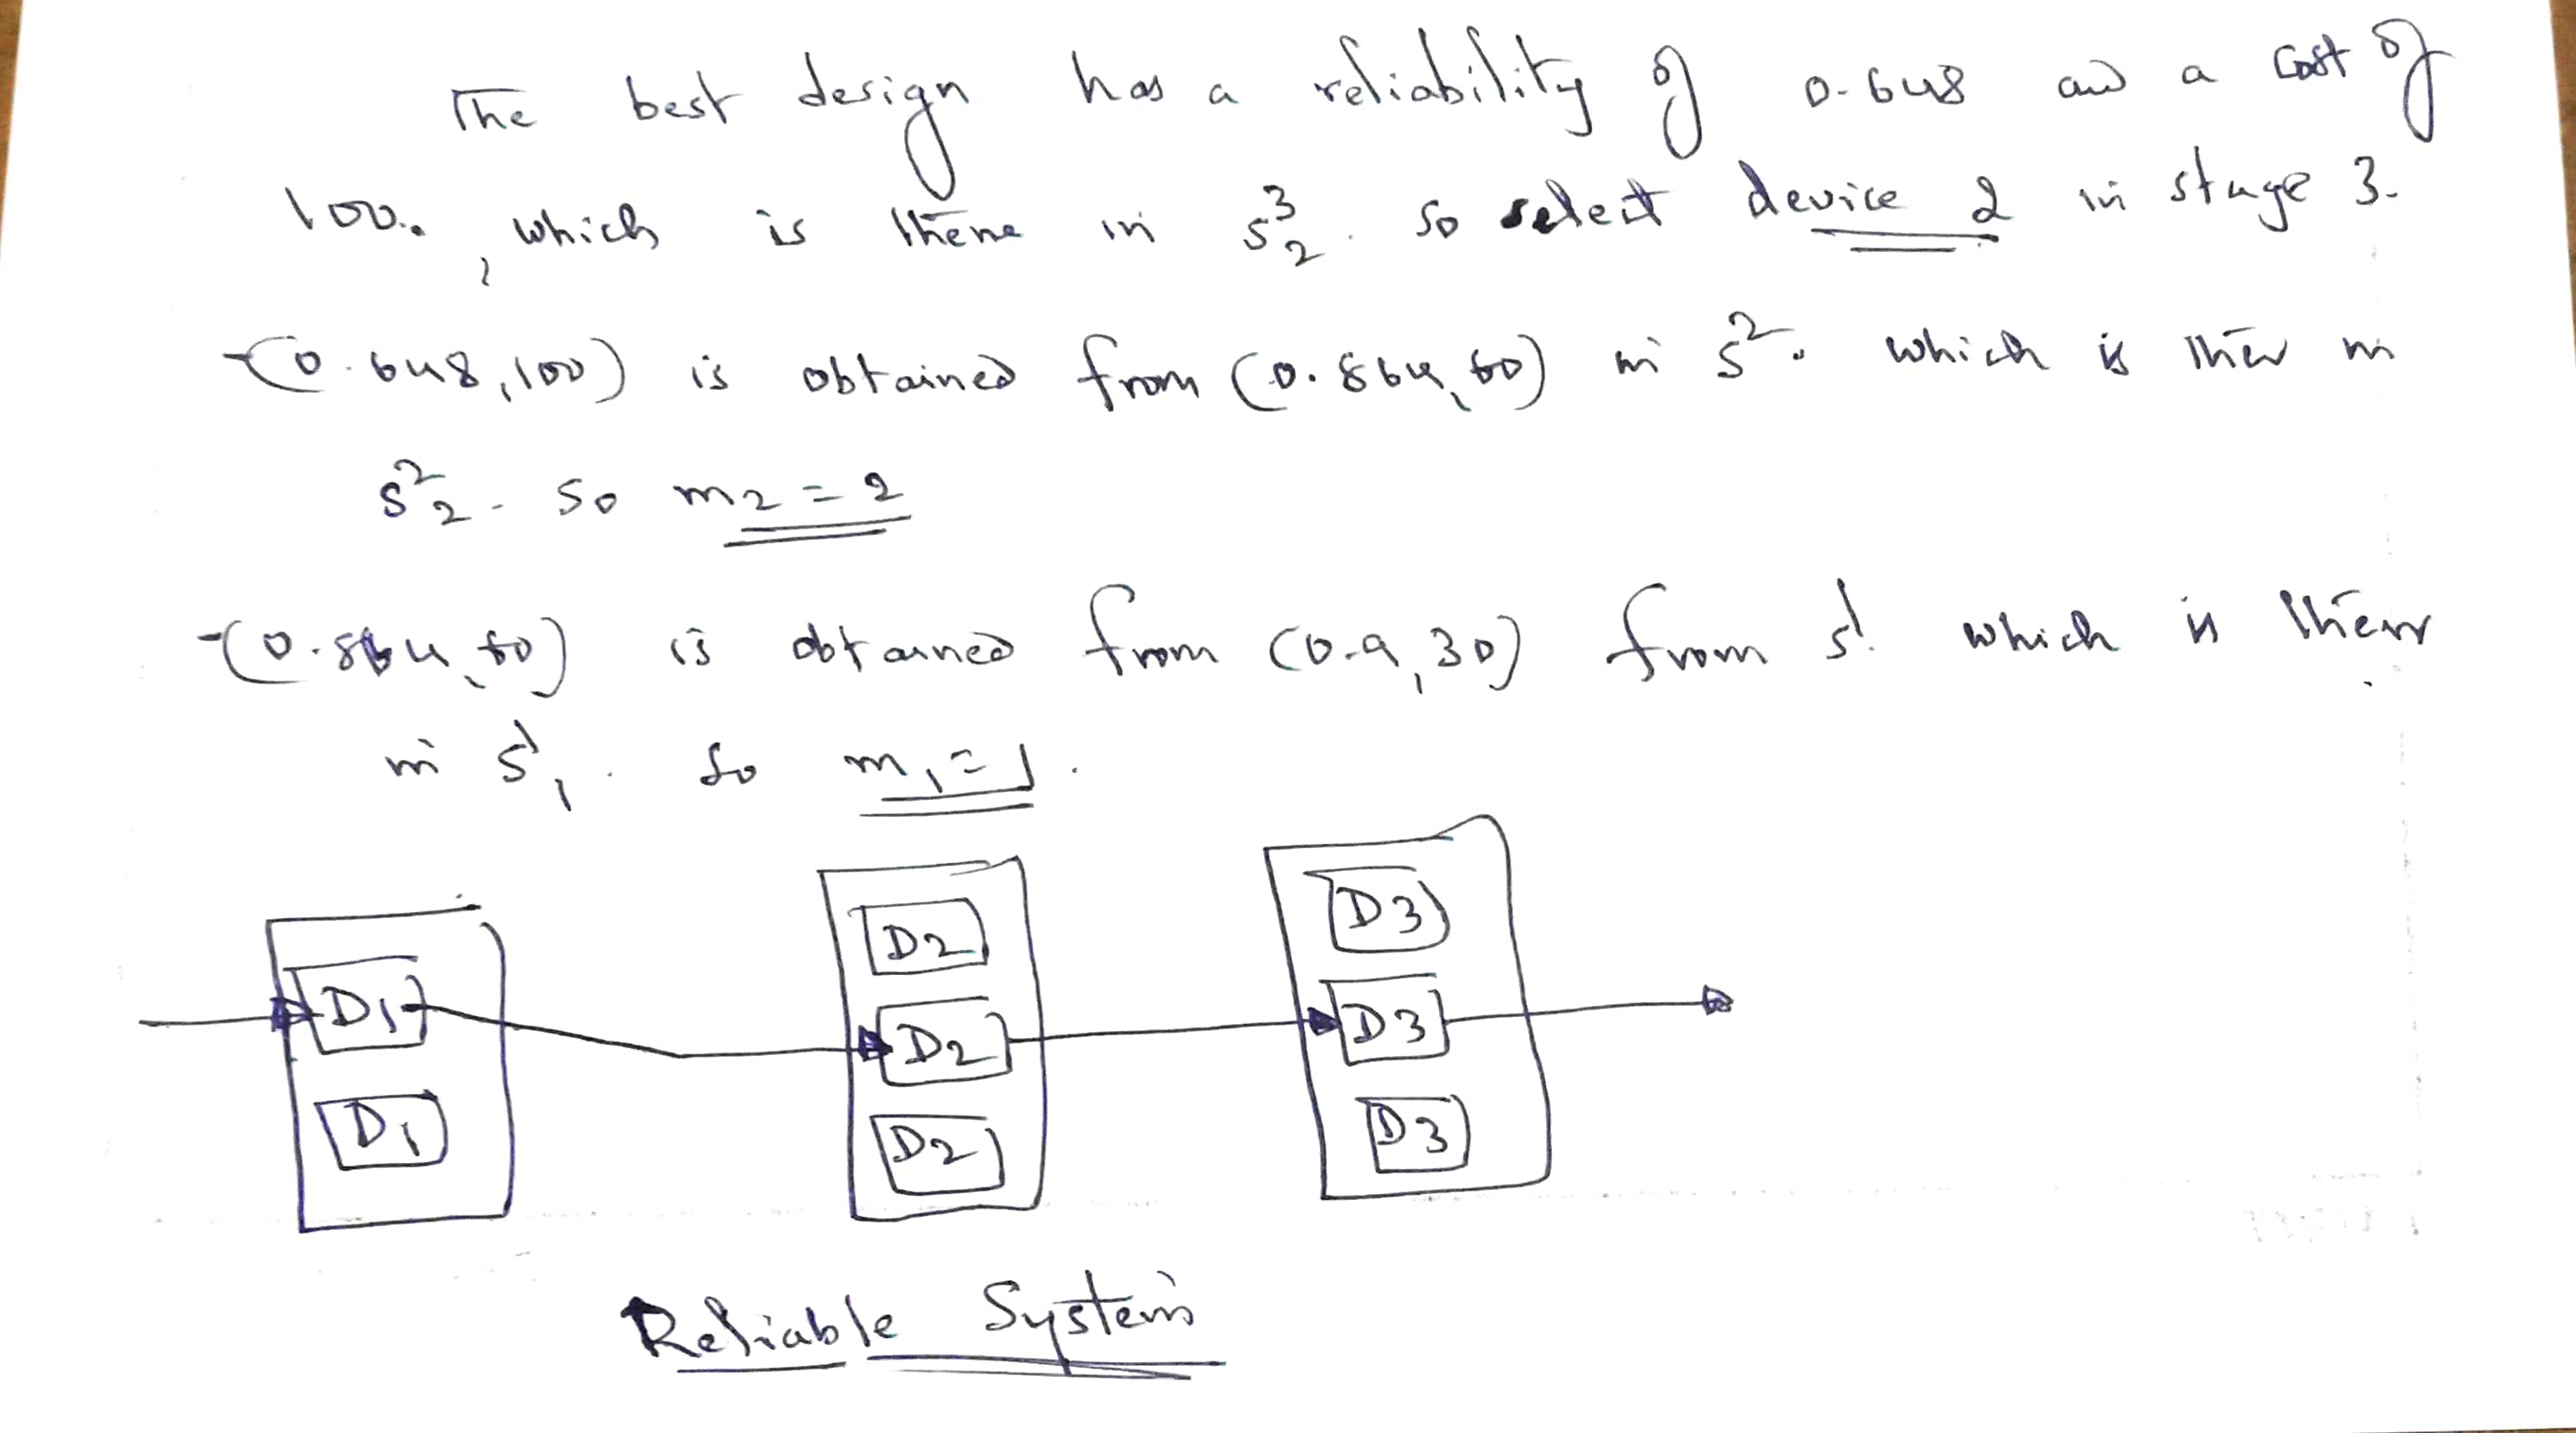 The best design has a reliability of 0.648 and a cost of
100., which is there in S³₂. So select device 2 in stage 3.
-(0.648,100) is obtained from (0.864,60) in S². which is there in
S²₂. So m₂ = 2
-(0.864,60) is obtained from (0.9,30) from S¹. which is there
in S¹₁. So m₁ = 1.
D1 D2 D3
D1 D2 D3
D2 D3
Reliable System